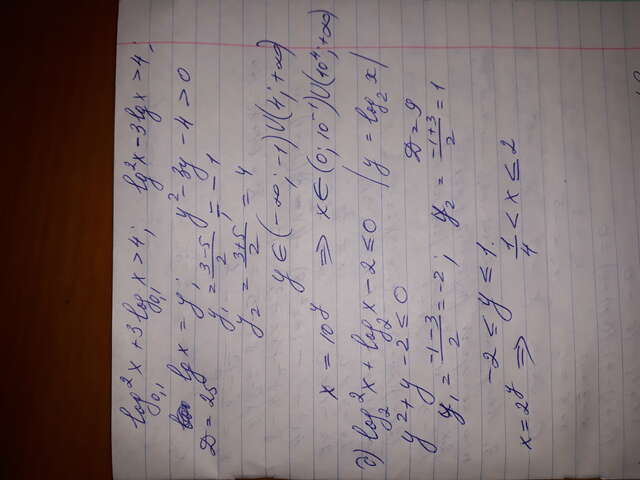 log²₀,₁ x + 3 log₀,₁ x > 4; lg²x - 3 lg x > 4;
lg x = y; y² - 3y - 4 > 0
D = 25 y₁ = (3-5)/2 = -1
y₂ = (3+5)/2 = 4
y ∈ (-∞; -1) ∪ (4; +∞)
x = 10^y ⇒ x ∈ (0; 10⁻¹) ∪ (10⁴; +∞)
log₂²x + log₂x - 2 ≤ 0 / y = log₂ x /
y² + y - 2 ≤ 0 D = 9
y₁ = (-1-3)/2 = -2; y₂ = (-1+3)/2 = 1
-2 ≤ y ≤ 1
x = 2^y ⇒ 1/4 < x ≤ 2